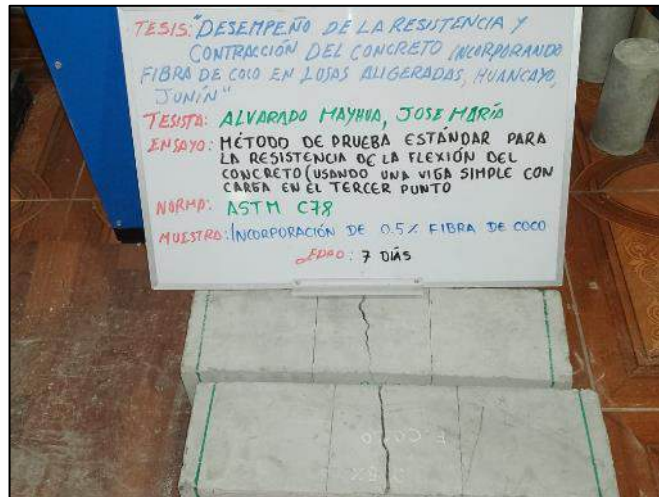 TESIS: "DESEMPEÑO DE LA RESISTENCIA Y
CONTRACCIÓN DEL CONCRETO INCORPORANDO
FIBRA DE COCO EN LOSAS ALIGERADAS, HUANCAYO,
JUNÍN"
TESISTA: ALVARADO MAYHUA, JOSE MARÍA
ENSAYO: MÉTODO DE PRUEBA ESTÁNDAR PARA
LA RESISTENCIA DE LA FLEXIÓN DEL
CONCRETO (USANDO UNA VIGA SIMPLE CON
CARGA EN EL TERCER PUNTO
NORMA: ASTM C78
MUESTRA: INCORPORACIÓN DE 0.5% FIBRA DE COCO
EDAD: 7 DÍAS
F. COCO